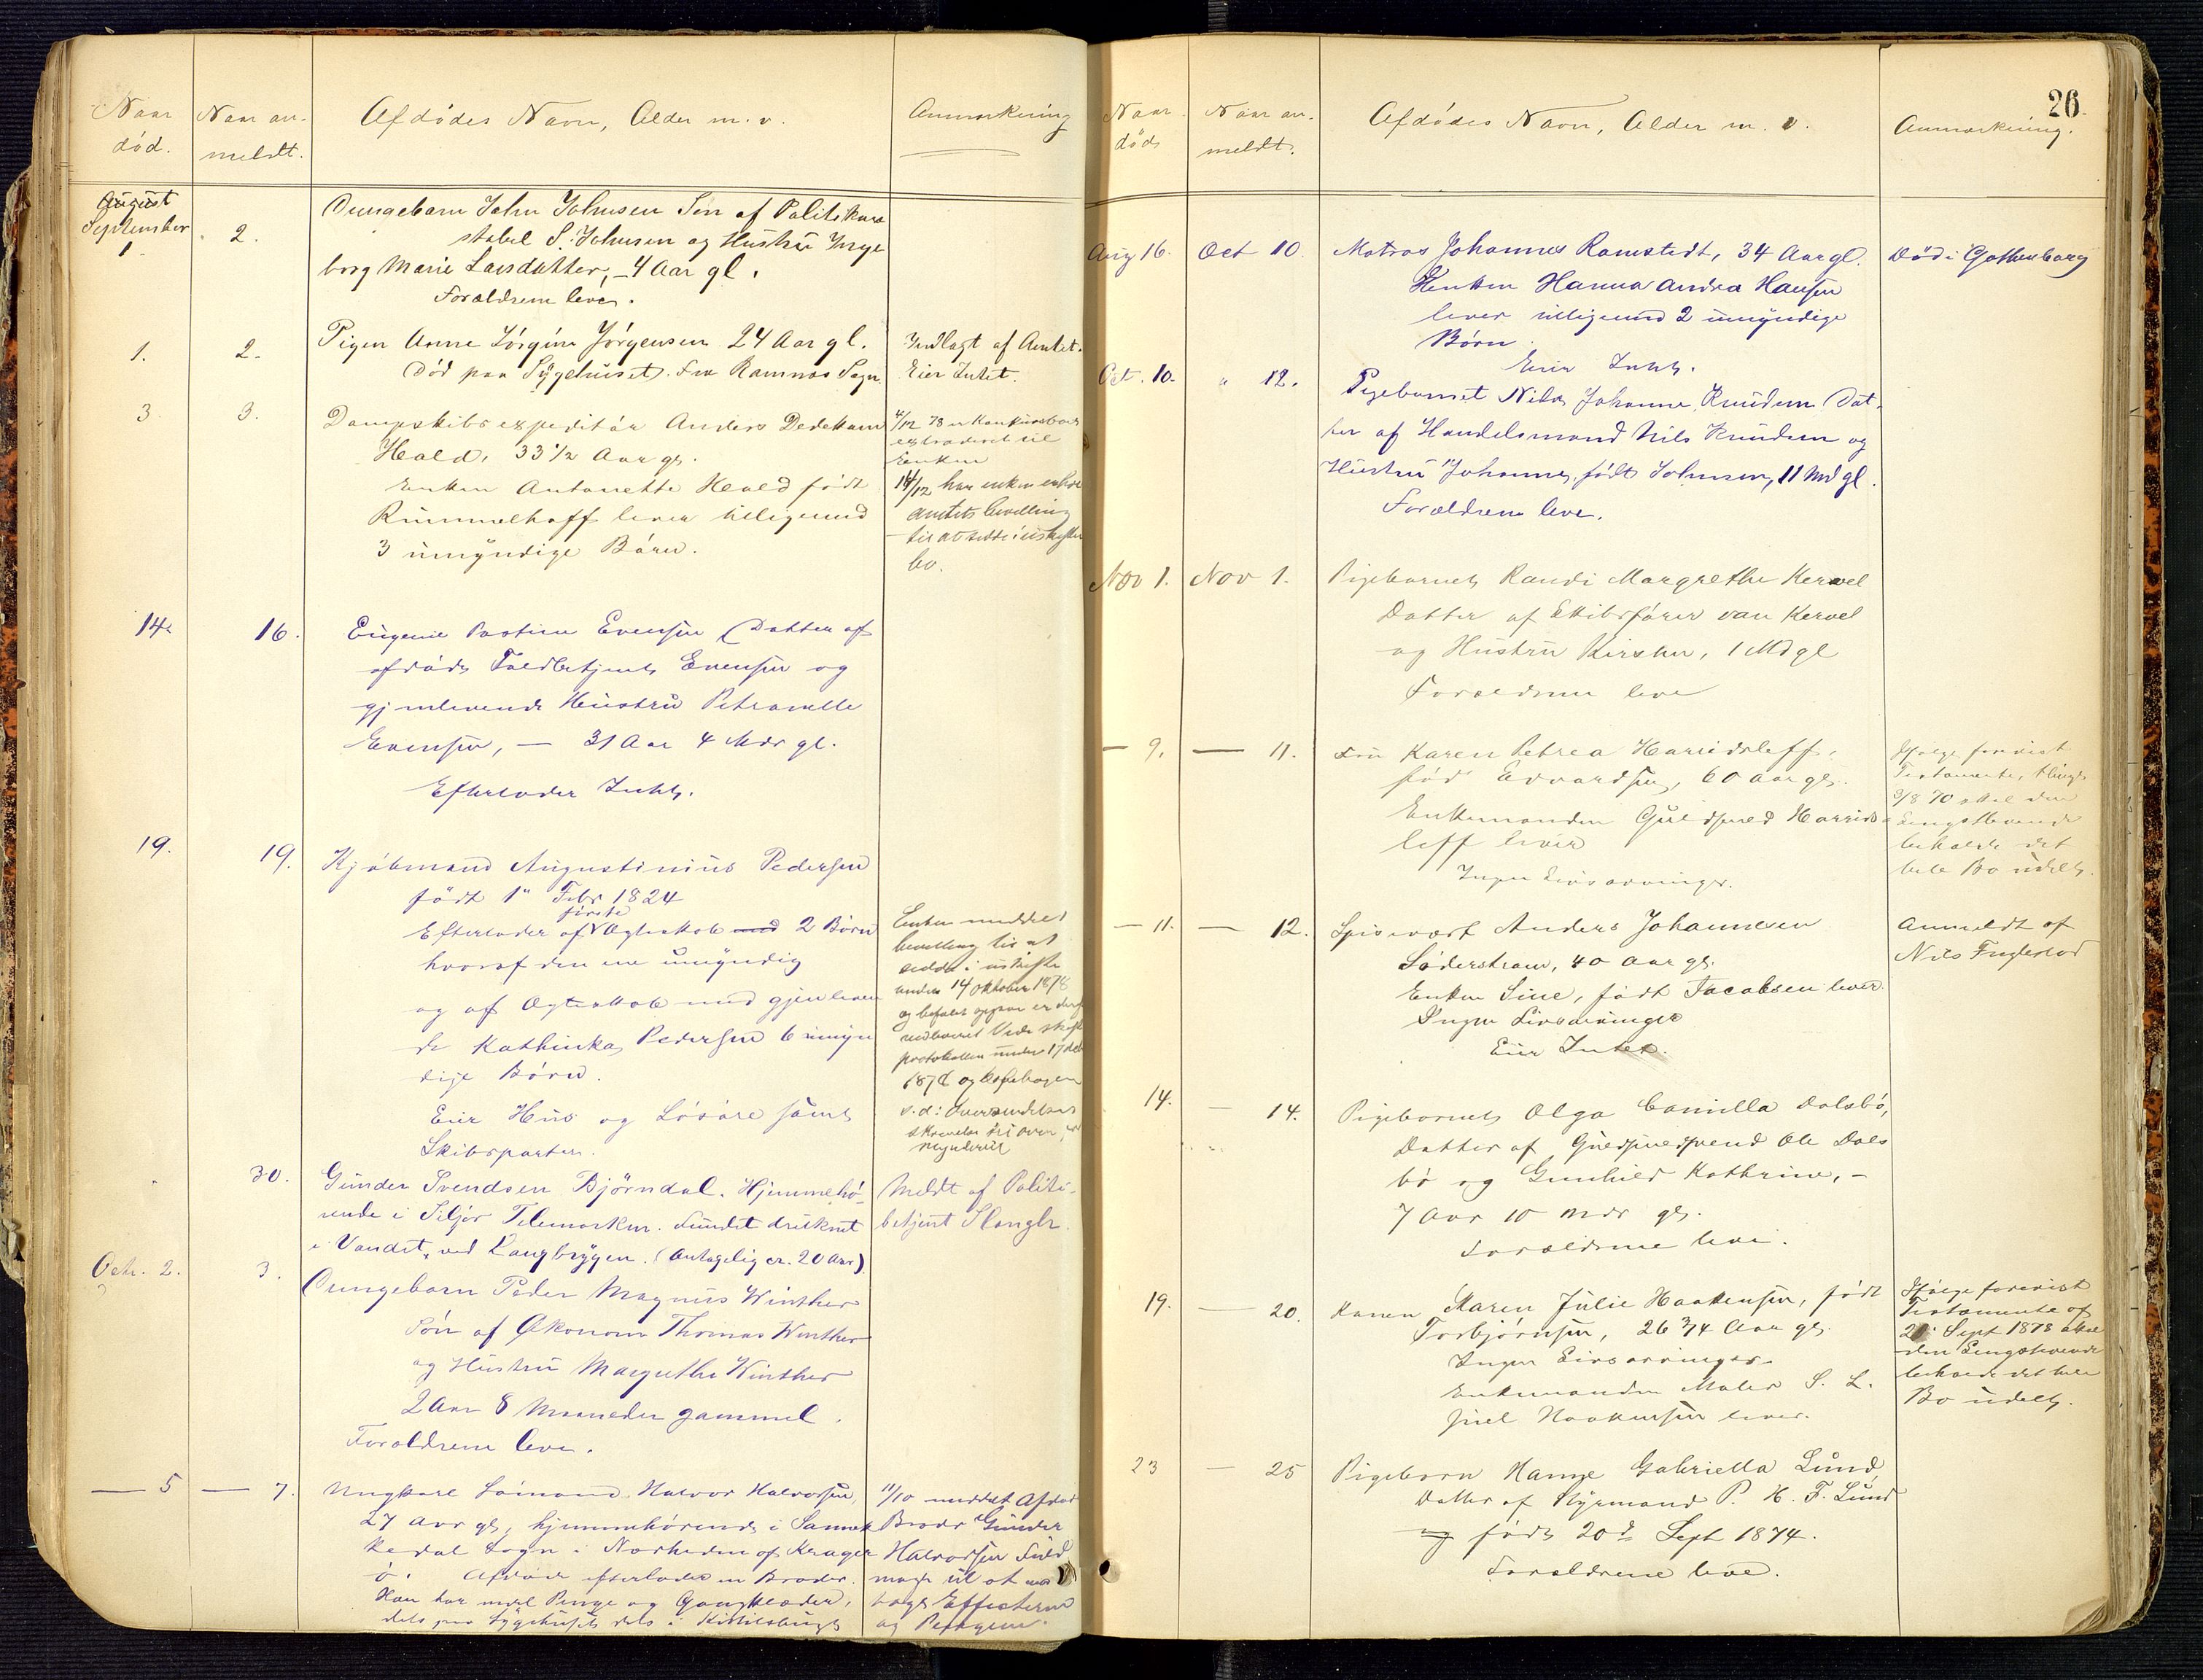 Naar død.
Naar an-
meldt.
Afdødes Navn, Alder m. v.
Anmærkning
August
September
1.
2.
Drengebarn John Johnsen Søn af Politikon
stabel S. Johnsen og Hustru Inge
borg Marie Larsdatter, – 4 Aar gl.
Forældrene lever.
1.
2.
Pigen Anne Jörgine Jörgensen 24 Aar gl.
Død paa Sygehuset. Fra Ramnæs Sogn.
Indlagt af Amtet.
Eier Intet.
3
3.
Dampskibsexpeditør Anders Dedekam
Heold, 33 1/2 Aar gl.
Enken Antonette Heold født
Rummelhoff lever tilligemed
3 umyndige Børn.
4/12 78 er Konkursboet
extraderet til
Enken
14/12 har enken erholdt
amtets bevilling
til at sidde i uskiftet
bo.
14.
16.
Eugenie Pastine Evensen (Datter af
afdøde Toldbetjent Evensen og
gjenlevende Hustru Petronelle
Evensen, — 31 Aar 4 Mdr gl.
Efterlader Intet.
19.
19.
Kjøbmand Augustinius Pedersen
født 1" Febr 1824
Efterlader af første Ægteskab med 2 Børn
hvoraf den ene umyndig
og af Ægteskab med gjenleven
de Kathinka Pedersen 6 umyn
dige Børn.
Eier Hus og Løsøre samt
Skibsparter.
Enken meddelt
bevilling til at
sidde i uskifte
under 14 oktober 1878
30.
Gunder Svendsen Bjørndal. Hjemmehö-
rende i Siljor Telemarken. Fundet druknet
i Vandet, ved Langbryggen. (Antagelig ca. 20 Aar)
Meldt af Politi-
betjent Stangeb.
Octr. 2.
3.
Drengebarn Peder Magnus Winther
Søn af Økonom Thomas Winther
og Hustru Margrethe Winther
2 Aar 8 Maaneder gammel.
Forældrene leve.
— 5
— 7.
Ungkarl Sømand Halvor Halvorsen,
27 Aar gl, hjemmehørende i Sannek
kedal Sogn i Nærheden af Krager
ö. Afdøde efterlader en Broder.
Han har medl Penge og Gangklæder,
dels paa Sygehuset dels i
11/10 meddelt Afdødes
Broder Gunder
Halvorsen Fuld
magt til at mod
tage Effecterne
og Pengene.
26.
Naar
død
Naar an-
meldt.
Afdødes Navn, Alder m. v.
Anmærkning.
Aug 16.
Oct 10.
Matros Johannes Ramstedt, 34 Aar gl.
Enken Hanna Andrea Hansen
lever tilligemed 2 umyndige
Børn.
Eier Intet.
Død i Gothenborg
Oct. 10.
" 12.
Pigebarnet Nilda Johanne Knudsen Dat-
ter af Handelsmand Nils Knudsen og
Hustru Johanne, født Johnsen, 11 Md gl.
Forældrene leve.
Nov 1.
Nov 1.
Pigebarnet Randi Margrethe Kervel
Datter af Skibsfører van Kervel
og Hustru Kirsten, 1 Md gl
Forældrene leve
— 9.
— 11.
Fru Karen Petrea Harridsleff,
fød Edvardsen, 60 Aar gl.
Enkemanden Guldsmed Harrids
leff lever
Ingen Livsarvinger.
Ifølge forevist
Testamente, tinglyst
3/8 70 skal den
Længstlevende
beholde det
hele Bo udelt.
— 11.
— 12.
Spisevært Anders Johannesen
Söderstrøm, 40 Aar gl.
Enken Sine, født Jacobsen lever.
Ingen Livsarvinger
Eier Intet.
Anmeldt af
Nils Fuglestad
14.
— 14.
Pigebarnet Olga Camilla Dalsbø,
Datter af Guldsmedsvend Ole Dals
bø og Gunhild Kathrine, –
7 Aar 10 Mdr gl.
Forældrene leve.
19.
— 20.
Konen Karen Julie Haakensen, født
Torbjørnsen, 26 3/4 Aar gl.
Ingen Livsarvinger.
Enkemanden Maler S. L.
Juel Haakensen lever.
Ifølge forevist
Testamente af
Sept 1878 skal
den Længstlevende
beholde det hele
Bo udelt.
23
— 25
Pigebarn Hansje Gabriella Lund,
Datter af Styrmand P. H. F. Lund
og født 20d Sept 1874.
Forældrene leve.